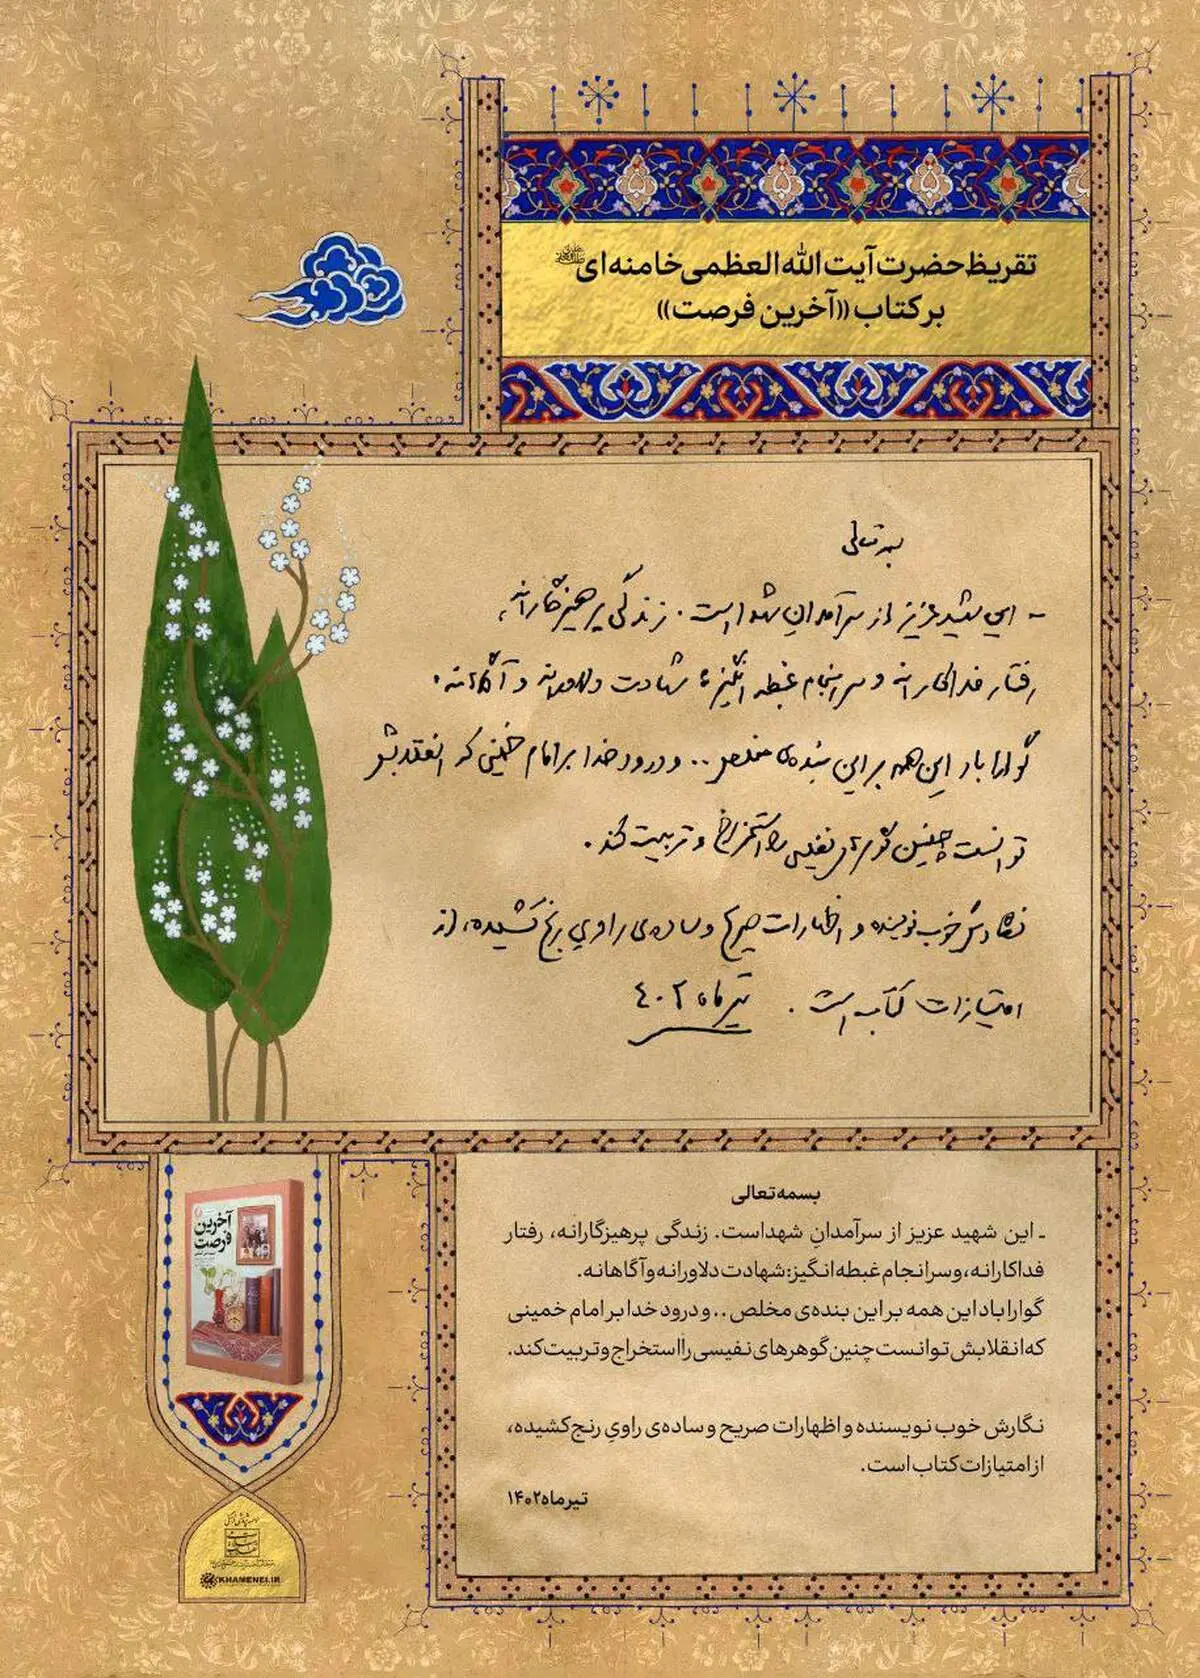 تقریظ حضرت آیت الله العظمی خامنه ای
بر کتاب «آخرین فرصت»
بسمه تعالی
- این شهید عزیز از سرآمدان شهدا است. زندگی پرهیزگارانه،
رفتار فداکارانه و سرانجام غبطه انگیز: شهادت دلاورانه و آگاهانه.
گوارا باد این همه بر این بنده‌ی مخلص .. و درود خدا بر امام خمینی که انقلابش
توانست چنین گوهرهای نفیسی را استخراج و تربیت کند.
نگارش خوب نویسنده و اظهارات صریح و ساده‌ی راوی رنج کشیده، از
امتیازات کتاب است. تیرماه ۴۰۲
آخرین
فرصت
KHAMENEI.IR
بسمه تعالی
ـ این شهید عزیز از سرآمدانِ شهداست. زندگی پرهیزگارانه، رفتار
فداکارانه، و سرانجام غبطه‌انگیز: شهادت دلاورانه و آگاهانه.
گوارا باد این همه بر این بنده‌ی مخلص .. و درود خدا بر امام خمینی
که انقلابش توانست چنین گوهرهای نفیسی را استخراج و تربیت کند.
نگارش خوب نویسنده و اظهارات صریح و ساده‌ی راویِ رنج کشیده،
از امتیازات کتاب است.
تیرماه ۱۴۰۲